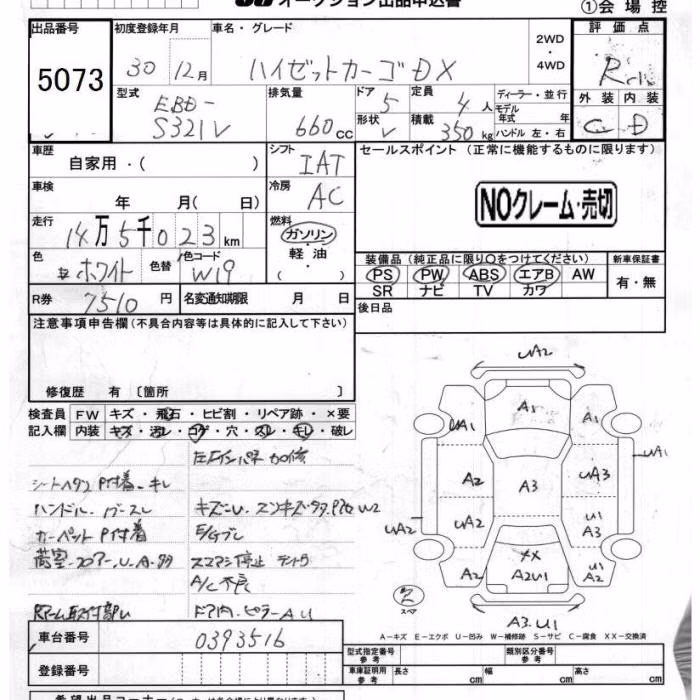 オークション出品申込書
①会場控
出品番号 初度登録年月 車名・グレード 評価点
5073 30 12月 ハイゼットカーゴDX 2WD・4WD R
型式 排気量 ドア 定員 ディーラー・並行 外装 内装
EBD-S321V 660cc 5 4人 モデル年式 年式 C D
形状 V 積載 350kg ハンドル 左・右
車歴 シフト セールスポイント (正常に機能するものに限ります)
自家用・( ) IAT
車検 冷房
年 月( 日) AC NOクレーム・売切
走行 燃料
14万5千023km ガソリン・軽油・( )
色 色替 色コード 装備品(純正品に限り○をつけてください) 新車保証書
ホワイト W19 PS PW ABS エアB AW 有・無
SR ナビ TV カワ
R券 7510円 名変通知期限 月 日 後日品
注意事項申告欄(不具合内容等は具体的に記入して下さい)
修復歴 有 〔箇所 〕
検査員 FW キズ・飛石・ヒビ割・リペア跡・×要
記入欄 内装 キズ・汚レ・コゲ・穴・スレ・キレ・破レ
シートヘタリ P付着 キレ
ハンドル キズU
カーペット P付着 E/Gブレ
A/C不良
ドア内・ピラーAU
UA2
A1 A1 UA1 UA1
A2 A3 UA3
UA2 UA2 U1 A3
A2 XX A2U1 U1 A2
スペア A3.U1
A-キズ E-エクボ U-凹み W-補修跡 S-サビ C-腐食 XX-交換済
車台番号 0393516 型式指定番号 参考 類別区分番号 参考
登録番号 車庫証明用 参考 長さ cm 幅 cm 高さ cm